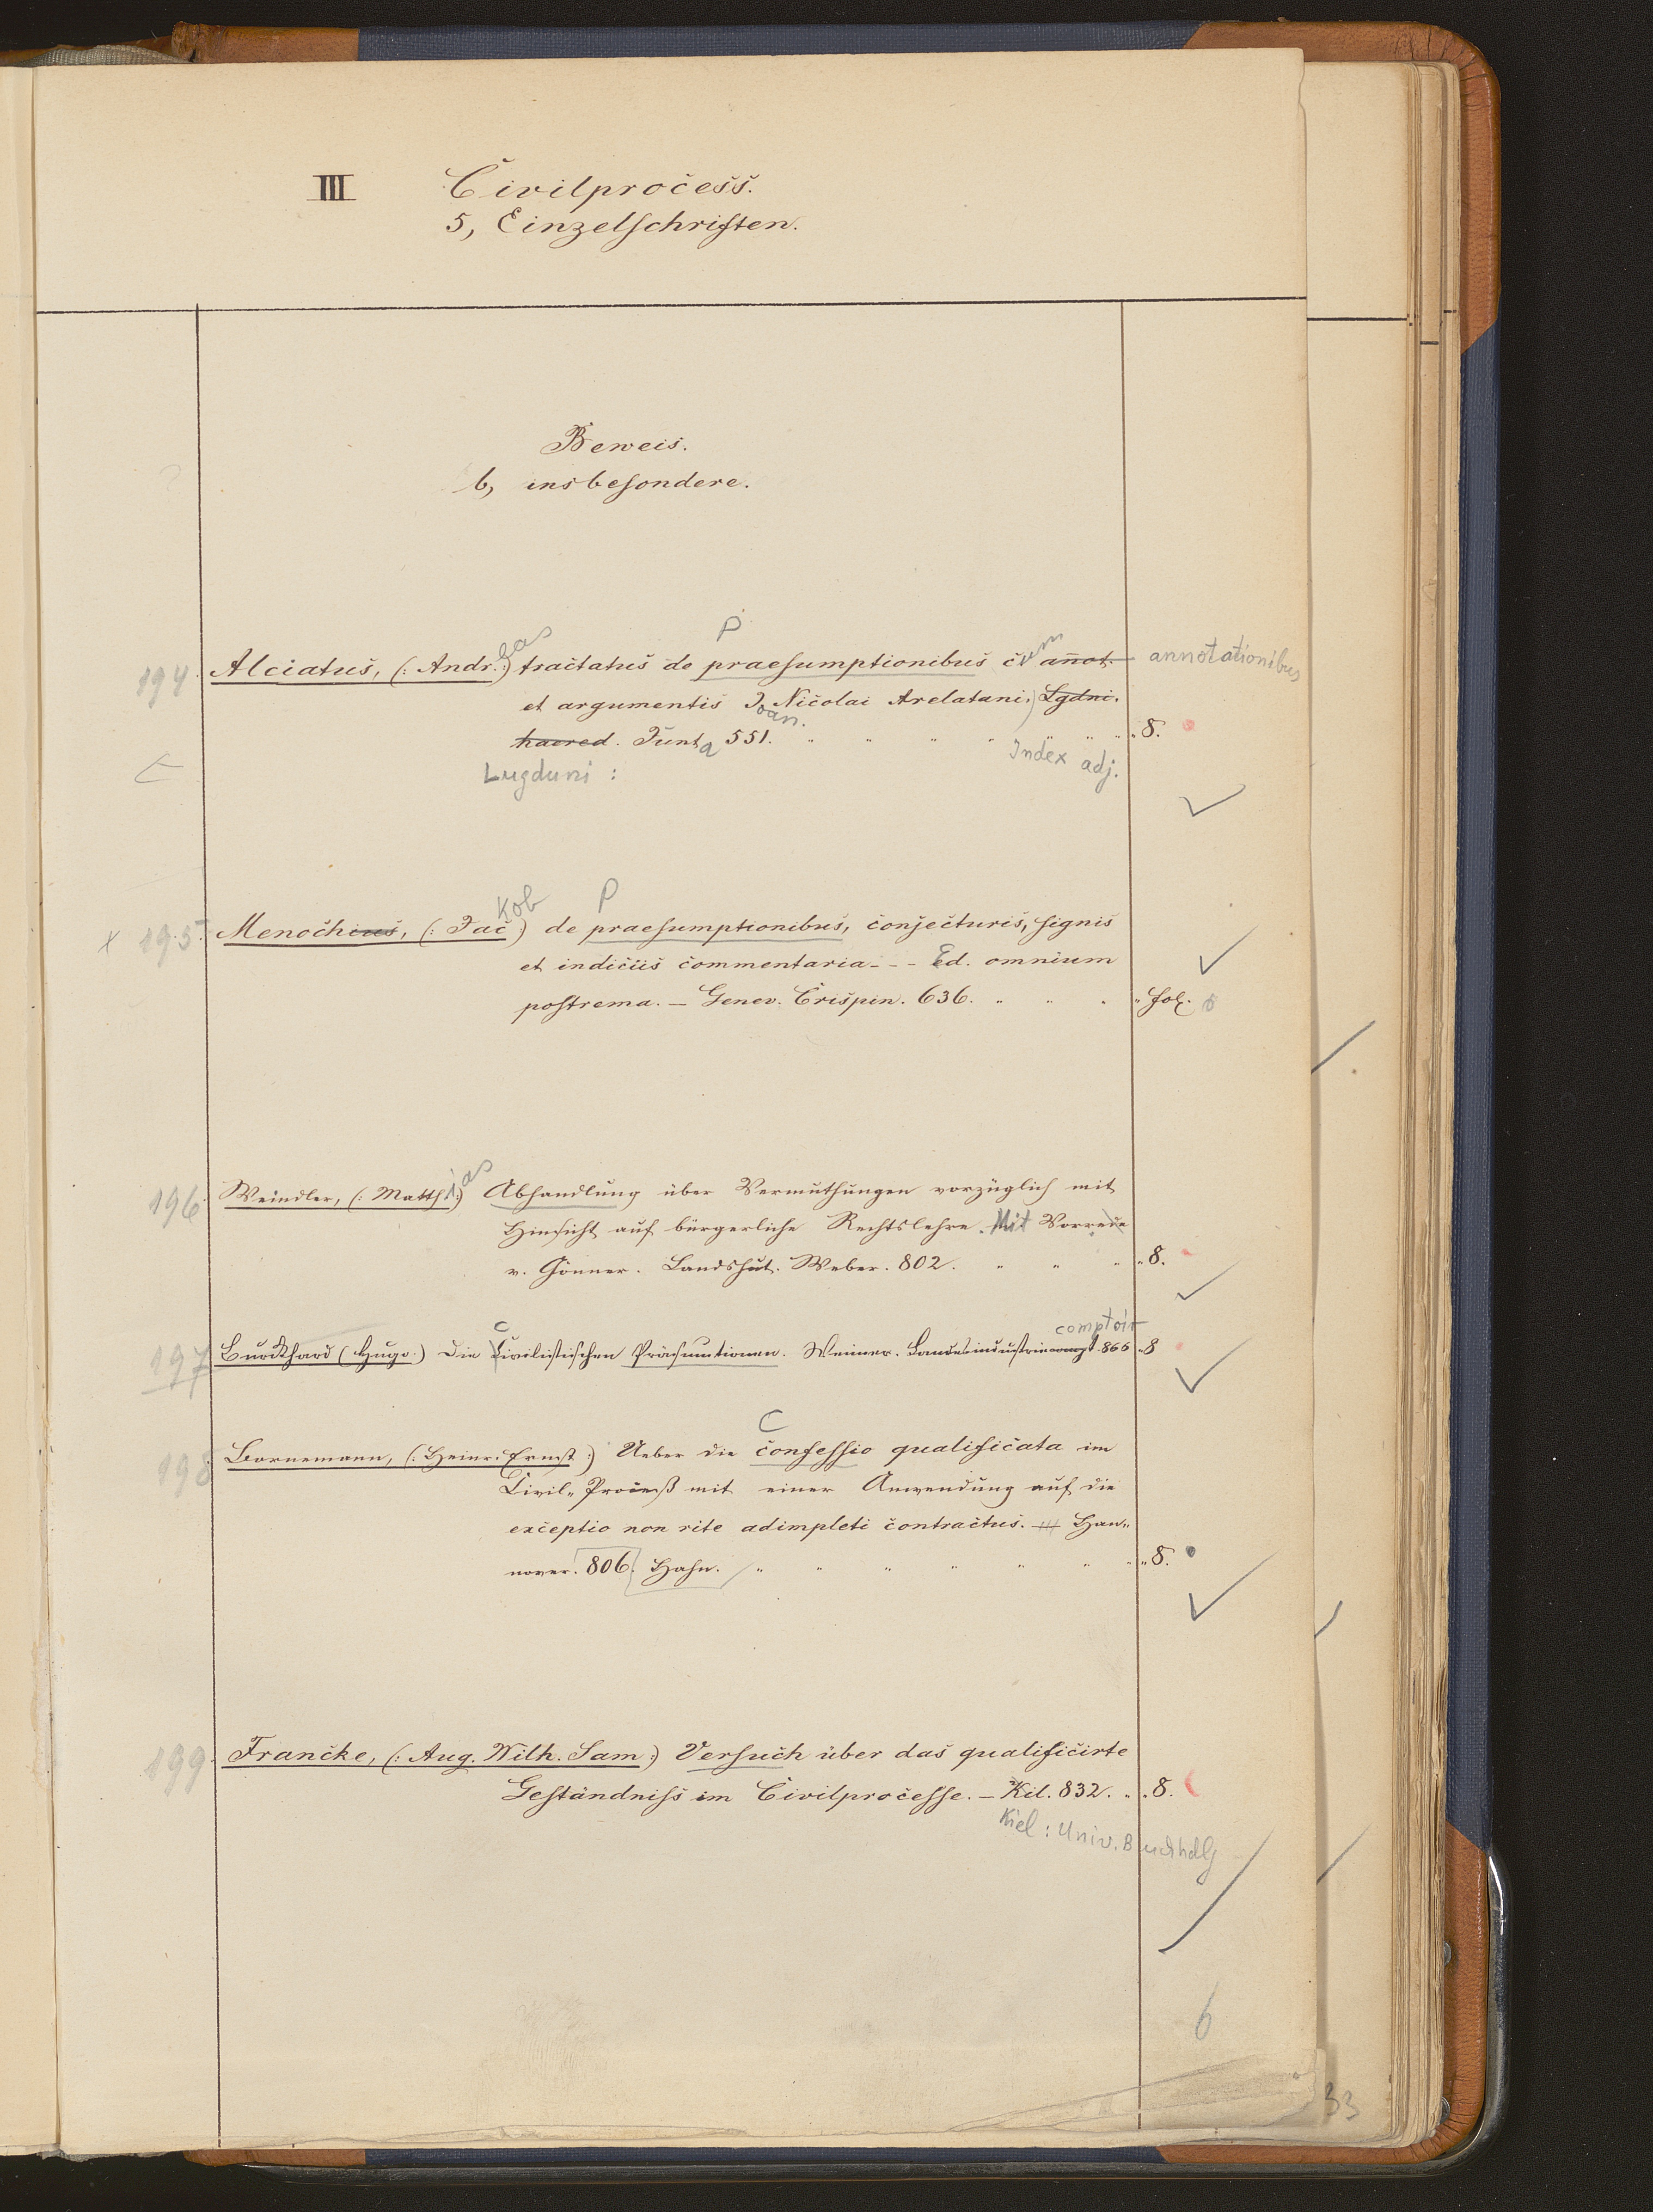 III Civilprocess.
5, Einzelschriften.
Beweis.
b, insbesondere.
P
194. Alciatus, (: Andr. :) eas tractatus de praesumptionibus cum annot. annotationibus
et argumentis Joan. Nicolai Arelatani. Lgdni.
haered. Junta 551. " " " " " " " 8.
Lugduni : Index adj.
P
x 195. Menochius, (: Jac :) kob de praesumptionibus, conjecturis, signis
et indiciis commentaria - - - Ed. omnium
postrema. – Genev. Crispin. 636. " " " " fol.
196. Weindler, (: Matth. :) ias Abhandlung über Vermuthungen vorzüglich mit
Hinsicht auf bürgerliche Rechtslehre. Mit Vorrede
v. Gönner. Landshut. Weber. 802. " " " " 8.
C comptoir
197 Burckhard (Hugo.) Die Civilistischen Präsumtionen. Weimar. Landesindustriecompt. 866 " 8
C
198 Bornemann, (: Heinr. Ernst :) Ueber die confessio qualificata im
Civil-Proceß mit einer Anwendung auf die
exceptio non rite adimpleti contractus. Han-
nover. 806. Hahn. " " " " " " " " 8.
199. Francke, (: Aug. Wilh. Sam :) Versuch über das qualificirte
Geständniss im Civilprocesse. – Kil. 832. " " 8.
Kiel : Univ. Buchhdlg
6
33